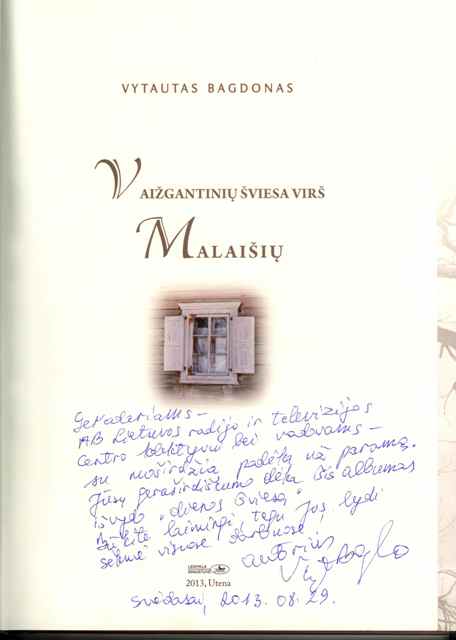 VYTAUTAS BAGDONAS
VAIŽGANTINIŲ ŠVIESA VIRŠ
MALAIŠIŲ
Geradariams –
AB Lietuvos radijo ir televizijos
centro kolektyvui bei vadovams –
su nuoširdžia padėka už paramą.
Jūsų geraširdiškumo dėka šis albumas
išvydo "dienos šviesą".
Būkite laimingi, tegu Jus lydi
sėkmė visuose darbuose!
autorius
2013, Utena
Svėdasai, 2013.08.29.